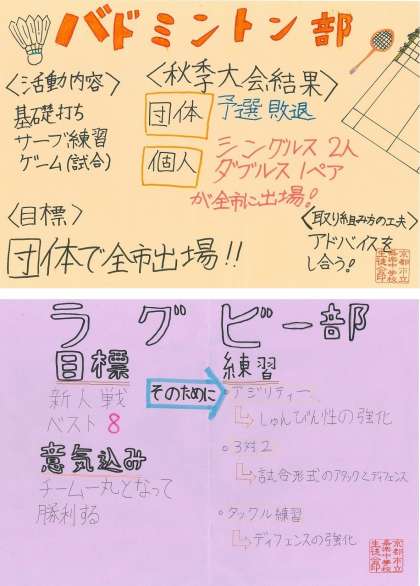 バドミントン部
〈活動内容〉
基礎打ち
サーブ練習
ゲーム(試合)
〈秋季大会結果〉
団体 予選敗退
個人 シングルス2人
ダブルス1ペア
が全市に出場!
〈目標〉
団体で全市出場!!
〈取り組み方の工夫〉
アドバイスを
し合う!
京都市立
嘉楽中学校
生徒会印
ラグビー部
目標
新人戦
ベスト8
意気込み
チーム一丸となって
勝利する
そのために
練習
・アジリティー
しゅんびん性の強化
・3対2
試合形式のアタックとディフェンス
・タックル練習
ディフェンスの強化
京都市立
嘉楽中学校
生徒会印